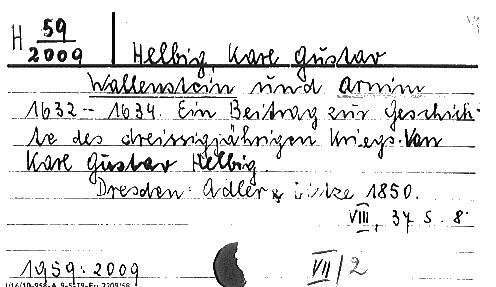 H 59
2009
Helbig, Karl Gustav
Wallenstein und Arnim
1632 – 1634. Ein Beitrag zur Geschich-
te des dreissigjährigen Kriegs. Von
Karl Gustav Helbig.
Dresden: Adler & 1850.
VIII, 37 S. 8°
1959:2009
VII/2